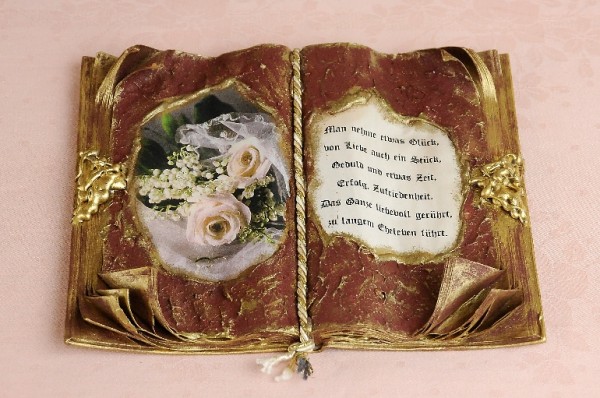 Man nehme etwas Glück,
von Liebe auch ein Stück,
Geduld und etwas Zeit,
Erfolg, Zufriedenheit.
Das Ganze liebevoll gerührt,
zu langem Eheleben führt.